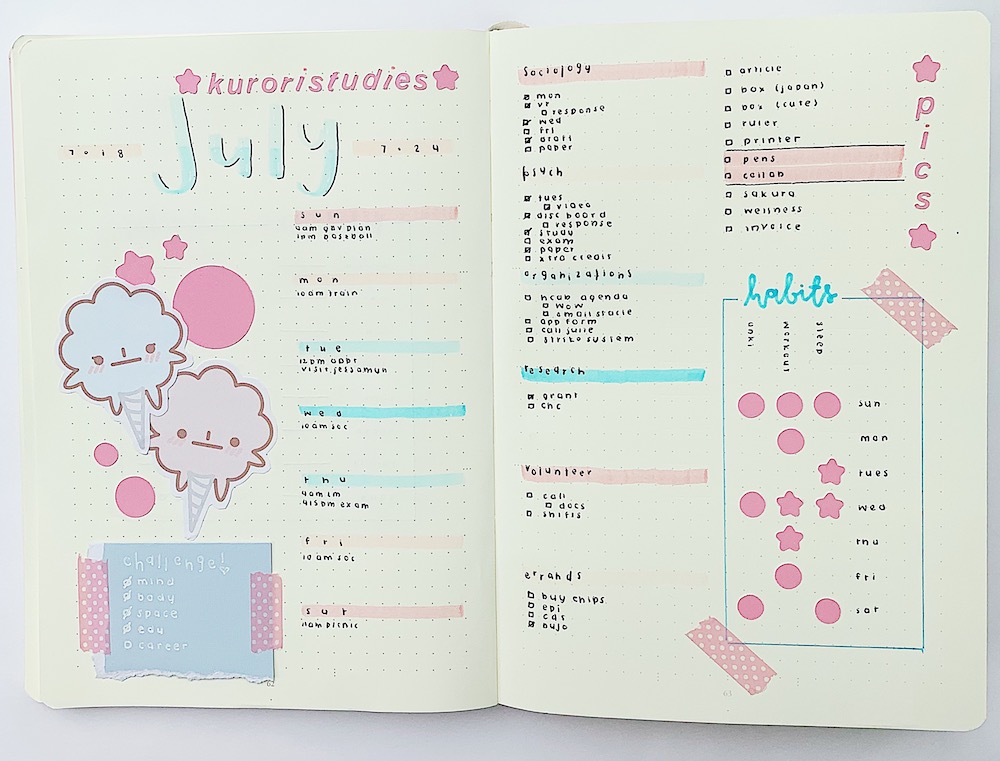 kuroristudies
July
7.18
7.24
sun
9am gbv plan
1pm baseball
mon
10am train
tue
12pm appt
visit.jessamyn
wed
10am soc
thu
9am lm
415pm exam
fri
10am soc
sat
11am picnic
challenge!
mind
body
space
edu
career
62
sociology
mon
vr
response
wed
fri
draft
paper
psych
tues
video
disc board
response
study
exam
paper
xtra credit
organizations
hcab agenda
wow
email stacie
app form
call julie
strike system
research
grant
chc
volunteer
call
docs
shifts
errands
buy chips
epi
cds
bujo
article
box (japan)
box (cute)
ruler
printer
pens
collab
sakura
wellness
invoice
pics
habits
anki
workout
sleep
sun
mon
tues
wed
thu
fri
sat
63